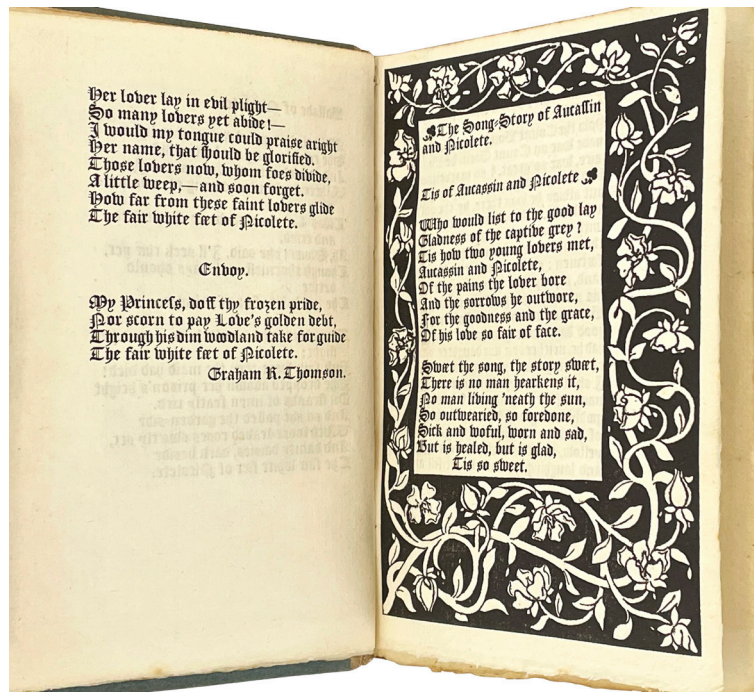 Her lover lay in evil plight—
So many lovers yet abide!—
I would my tongue could praise aright
Her name, that should be glorified.
Those lovers now, whom foes divide,
A little weep,—and soon forget.
How far from these faint lovers glide
The fair white feet of Nicolete.
Envoy.
My Princess, doff thy frozen pride,
Nor scorn to pay Love's golden debt,
Through his dim woodland take for guide
The fair white feet of Nicolete.
Graham R. Thomson.
The Song-Story of Aucassin
and Nicolete.
Tis of Aucassin and Nicolete
Who would list to the good lay
Gladness of the captive grey?
Tis how two young lovers met,
Aucassin and Nicolete,
Of the pains the lover bore
And the sorrows he outwore,
For the goodness and the grace,
Of his love so fair of face.
Sweet the song, the story sweet,
There is no man hearkens it,
No man living 'neath the sun,
So outwearied, so foredone,
Sick and woful, worn and sad,
But is healed, but is glad,
Tis so sweet.